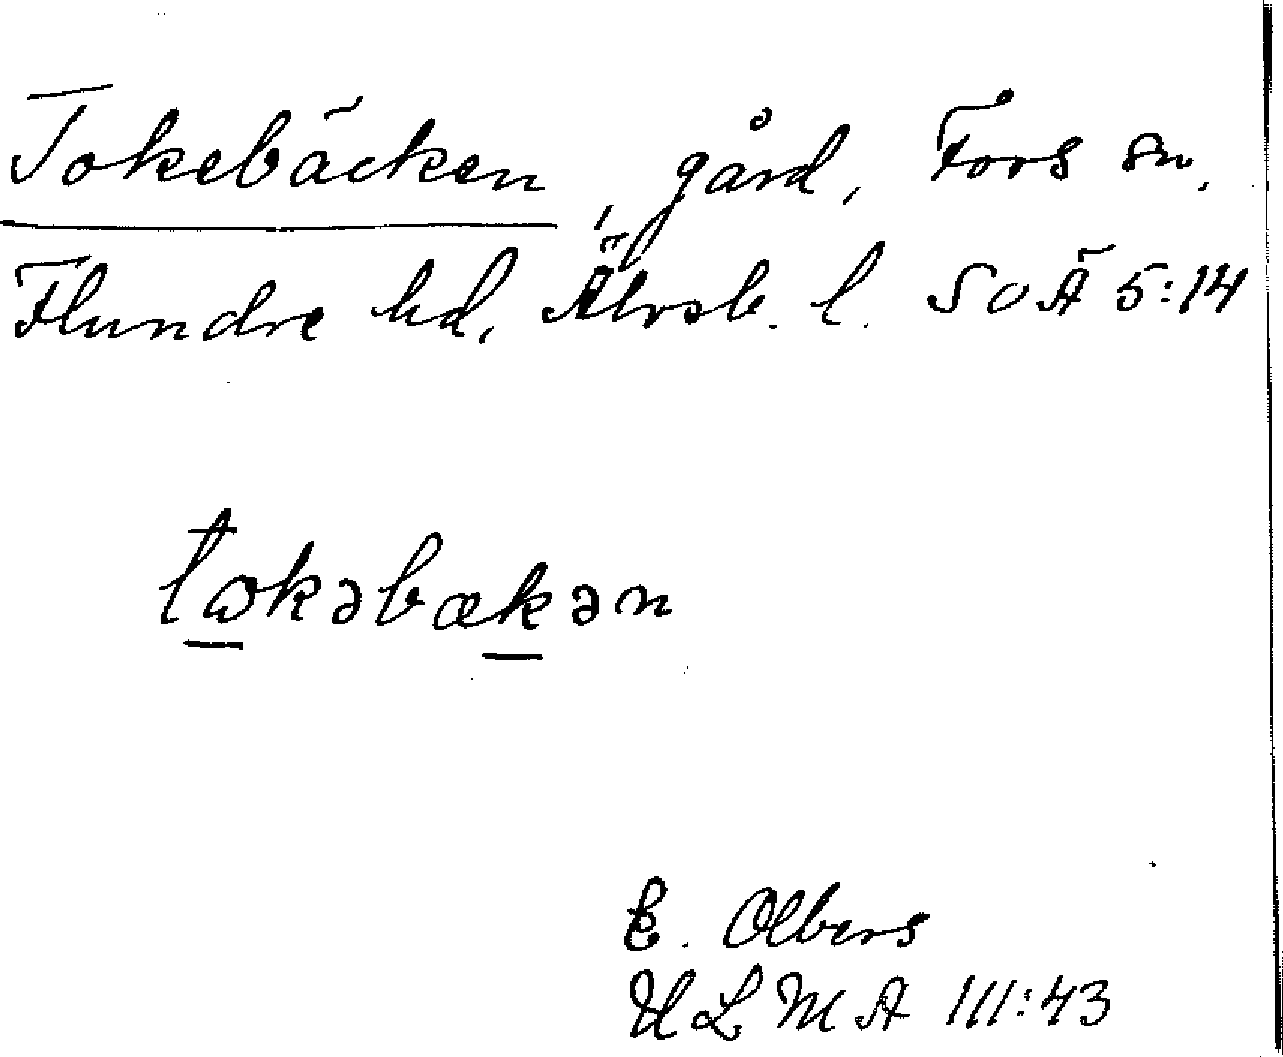 Tokebäcken, gård, Fors sn,
Flundre hd, Älvsb. l. SOÄ 5:14
tωkəbækən
E. Olbers
ULMA 111:43